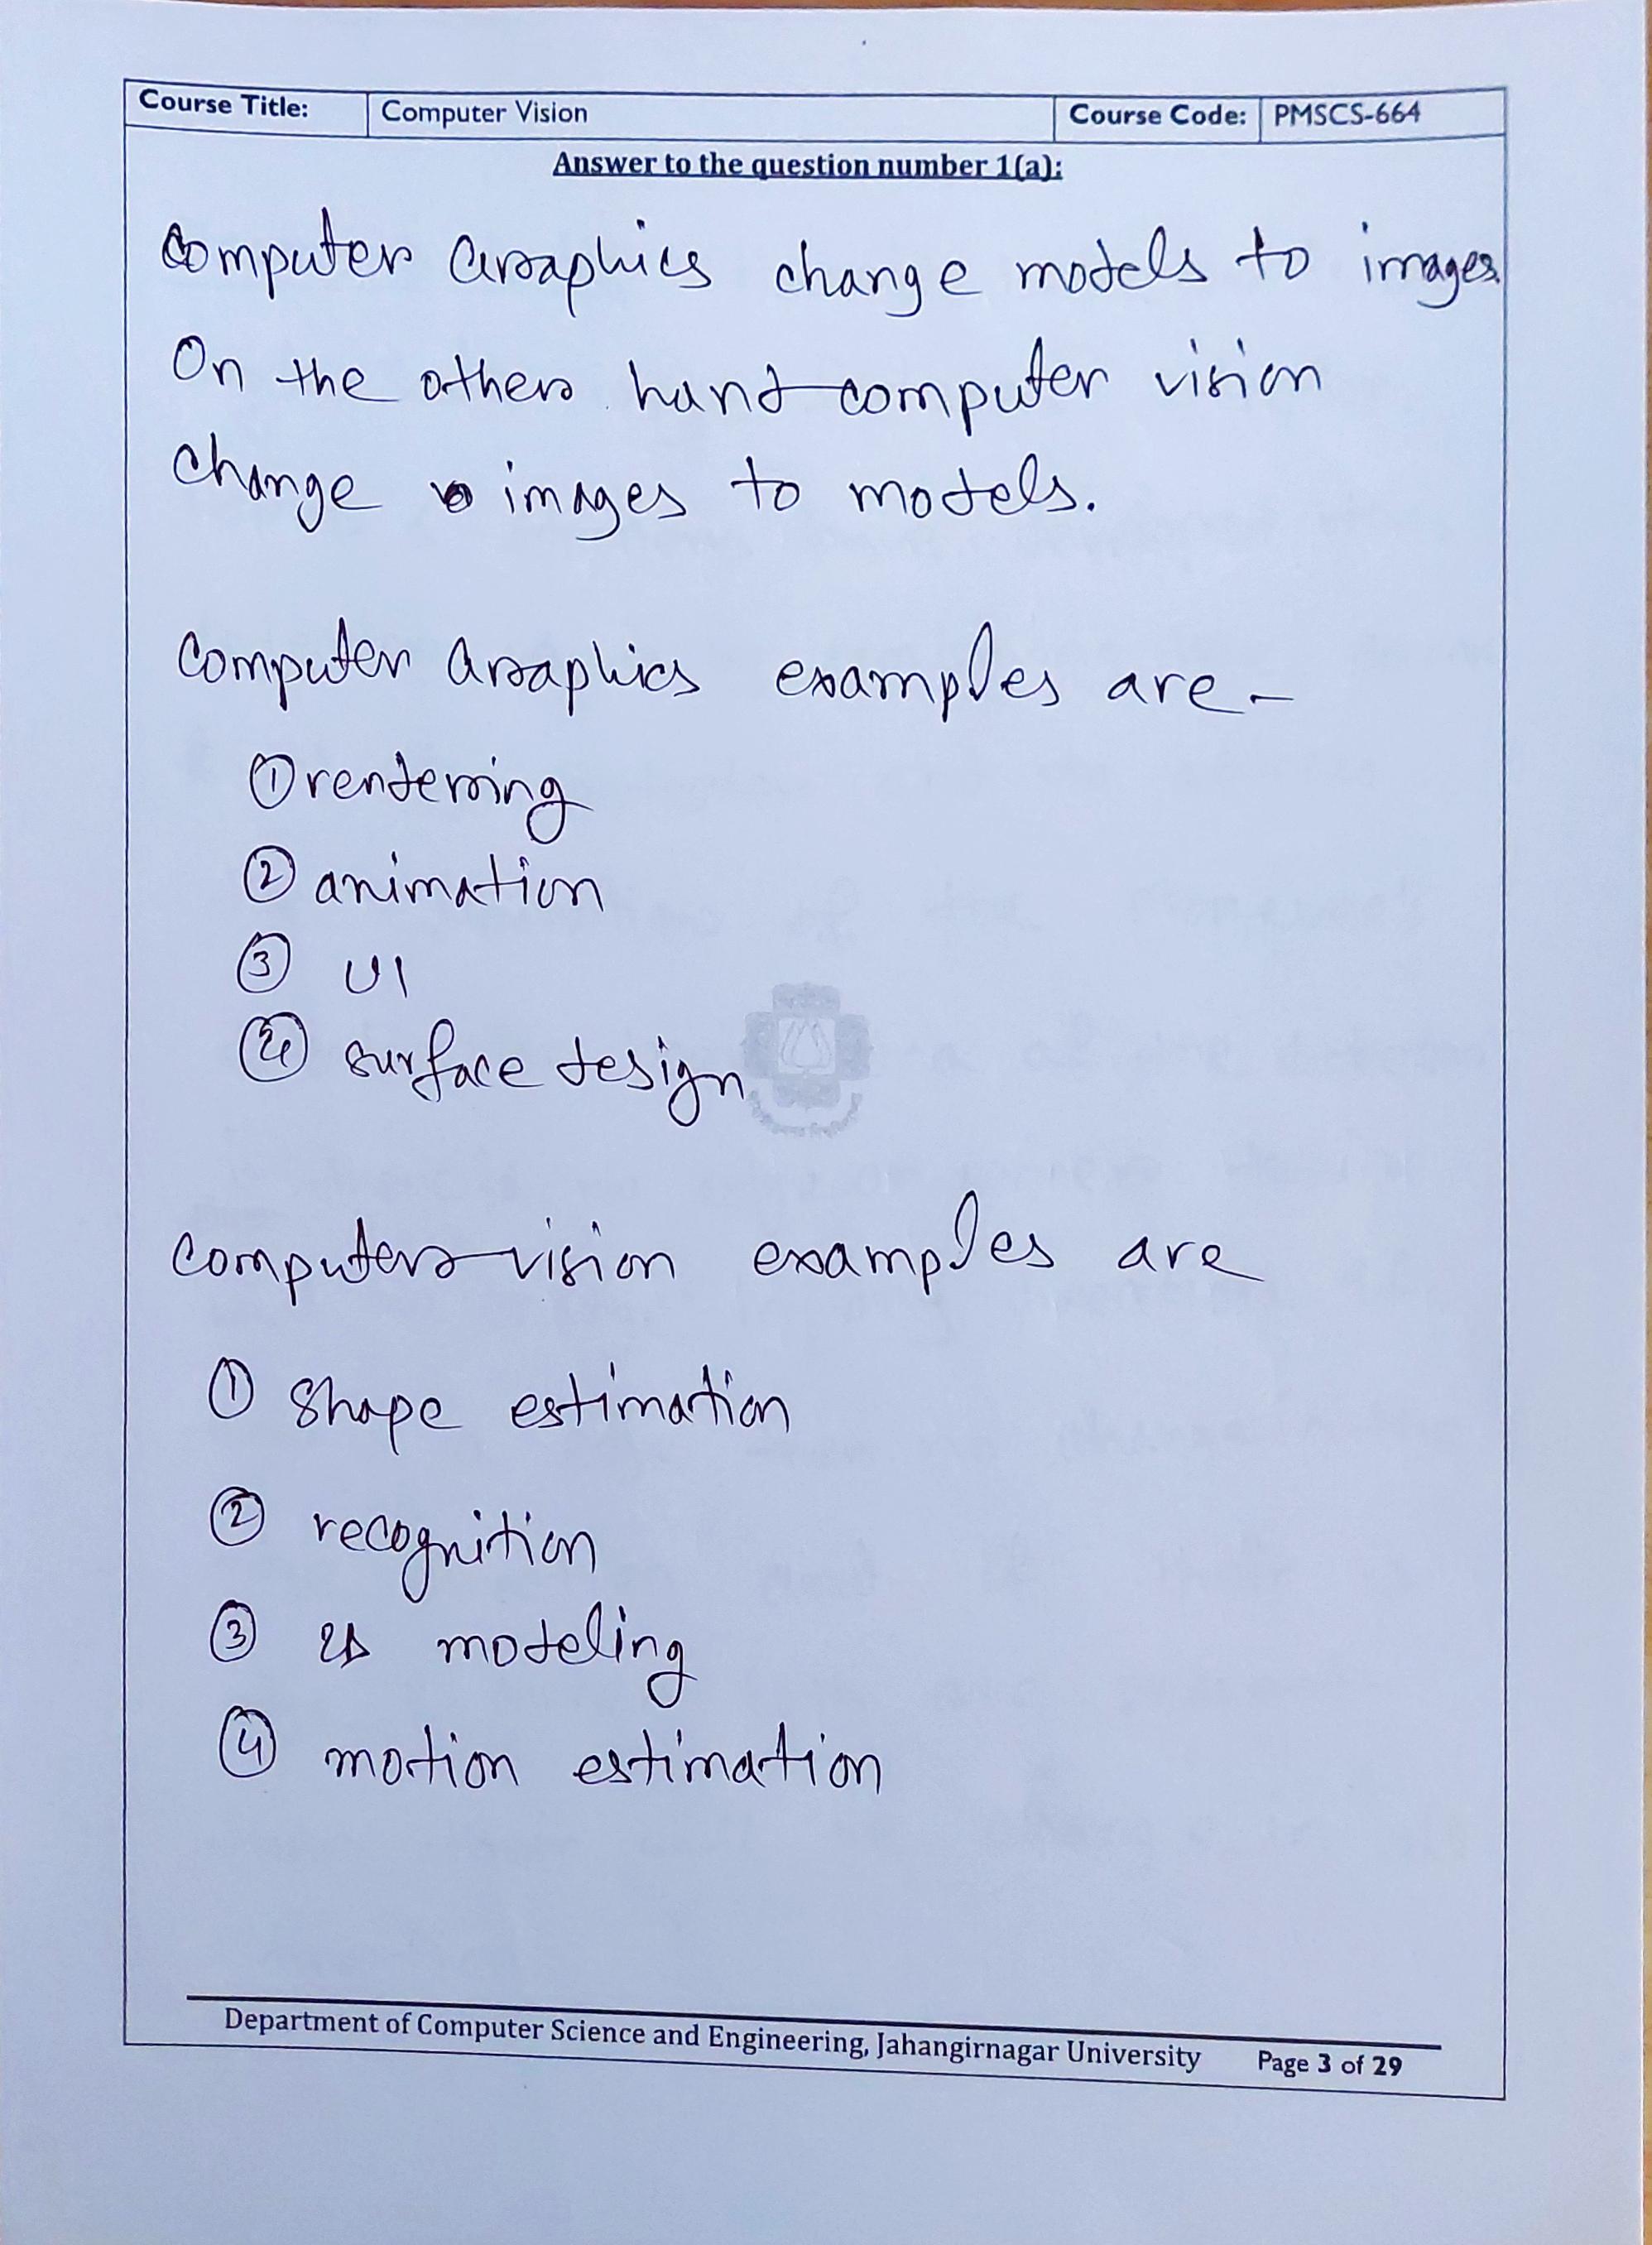 Course Title: Computer Vision Course Code: PMSCS-664
Answer to the question number 1(a):
Computer Graphics change models to images.
On the other hand computer vision
change images to models.
Computer Graphics examples are -
① rendering
② animation
③ UI
④ surface design
Computer vision examples are
① shape estimation
② recognition
③ modeling
④ motion estimation
Department of Computer Science and Engineering, Jahangirnagar University Page 3 of 29